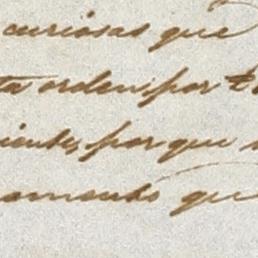 curiosas que
ta orden, por
iente, por que
amento que